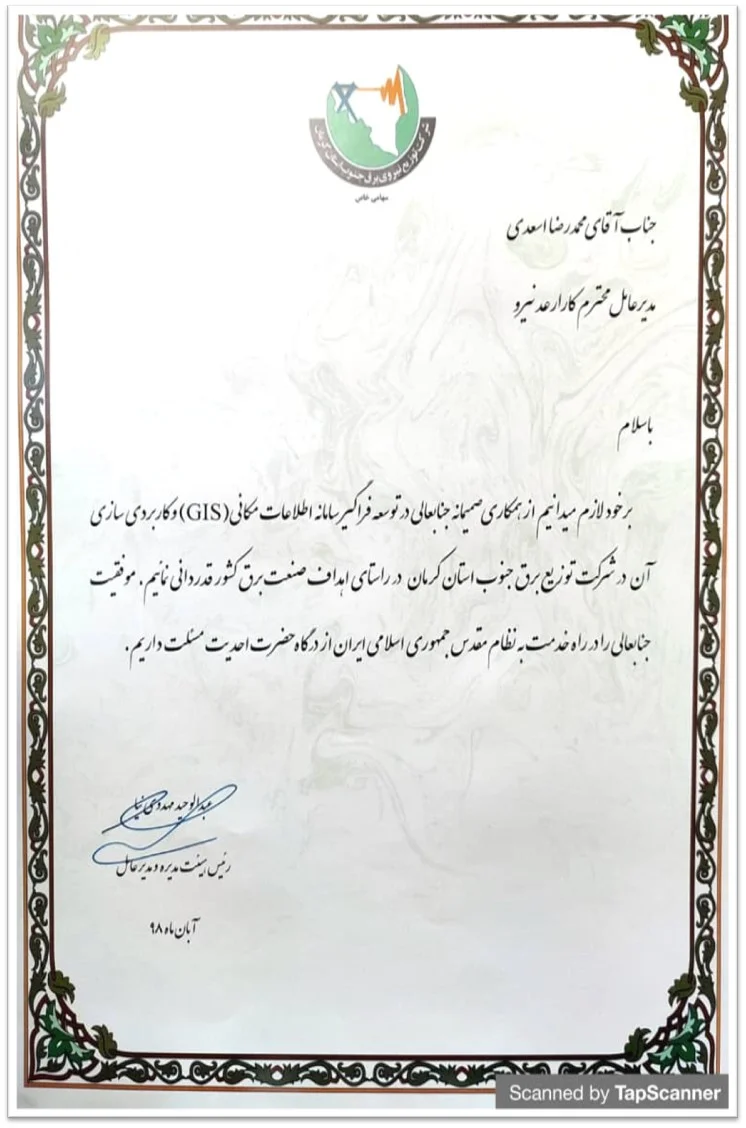 شرکت توزیع نیروی برق جنوب استان کرمان
سهامی خاص
جناب آقای محمدرضا اسعدی
مدیرعامل محترم کارا رعد نیرو
باسلام
برخود لازم میدانیم از همکاری صمیمانه جنابعالی در توسعه فراگیر سامانه اطلاعات مکانی (GIS) و کاربردی سازی
آن در شرکت توزیع برق جنوب استان کرمان در راستای اهداف صنعت برق کشور قدردانی نمائیم. موفقیت
جنابعالی را در راه خدمت به نظام مقدس جمهوری اسلامی ایران از درگاه حضرت احدیت مسئلت داریم.
عبدالوحید مهدوی نیا
رئیس هیئت مدیره و مدیرعامل
آبان ماه ۹۸
Scanned by TapScanner